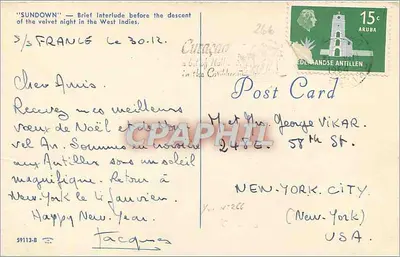 "SUNDOWN" — Brief interlude before the descent
of the velvet night in the West Indies.
S/S FRANCE Le 30.12.
Chers Amis.
Recevez nos meilleurs
vœux de Noël et
vel An. Sommes en
aux Antilles sous un soleil
magnifique. Retour à
New-York le 4 janvier.
Happy New Year.
Jacques
59113-B
266
Curaçao
in the Caribbean
15c
ARUBA
NEDERLANDSE ANTILLEN
Post Card
M et Me George VIKAR.
58th St.
NEW-YORK CITY.
(New-York)
USA.
DELCAMPE